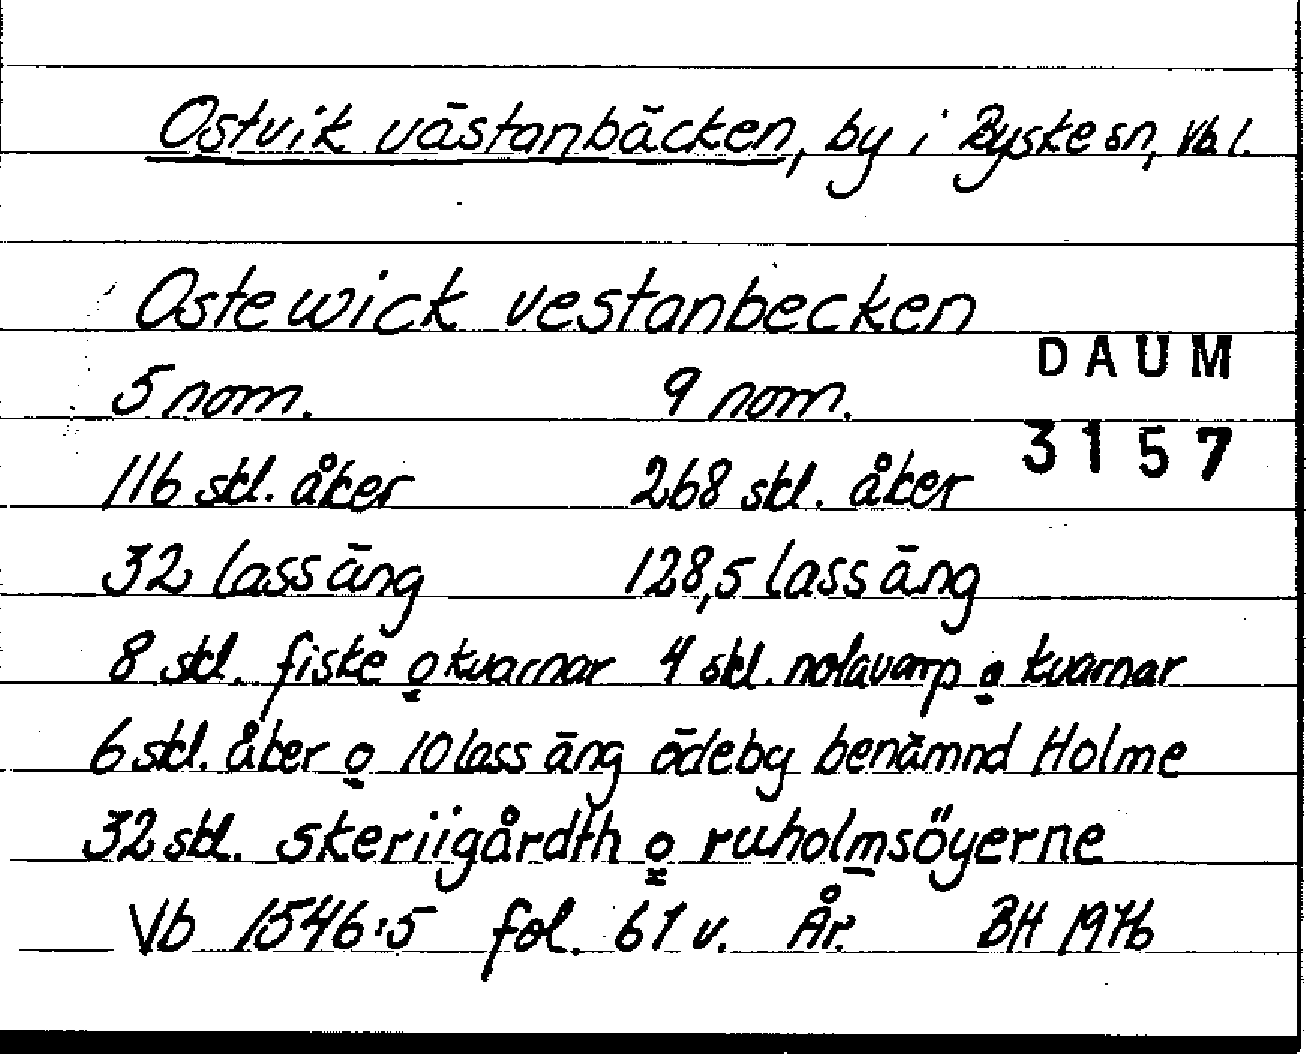 Ostvik västanbäcken, by i Byske sn, Vb l.
Ostewick vestanbecken
DAUM
5 nom. 9 nom.
3157
116 skl. åker 268 skl. åker
32 lass äng 128,5 lass äng
8 skl. fiske o kvarnar 4 skl. nolavarp o kvarnar
6 skl. åker o 10 lass äng ödeby benämnd Holme
32 skl. skeriigårdth o ruholmsöyerne
Vb 1546:5 fol. 67 v. År. BH 1976